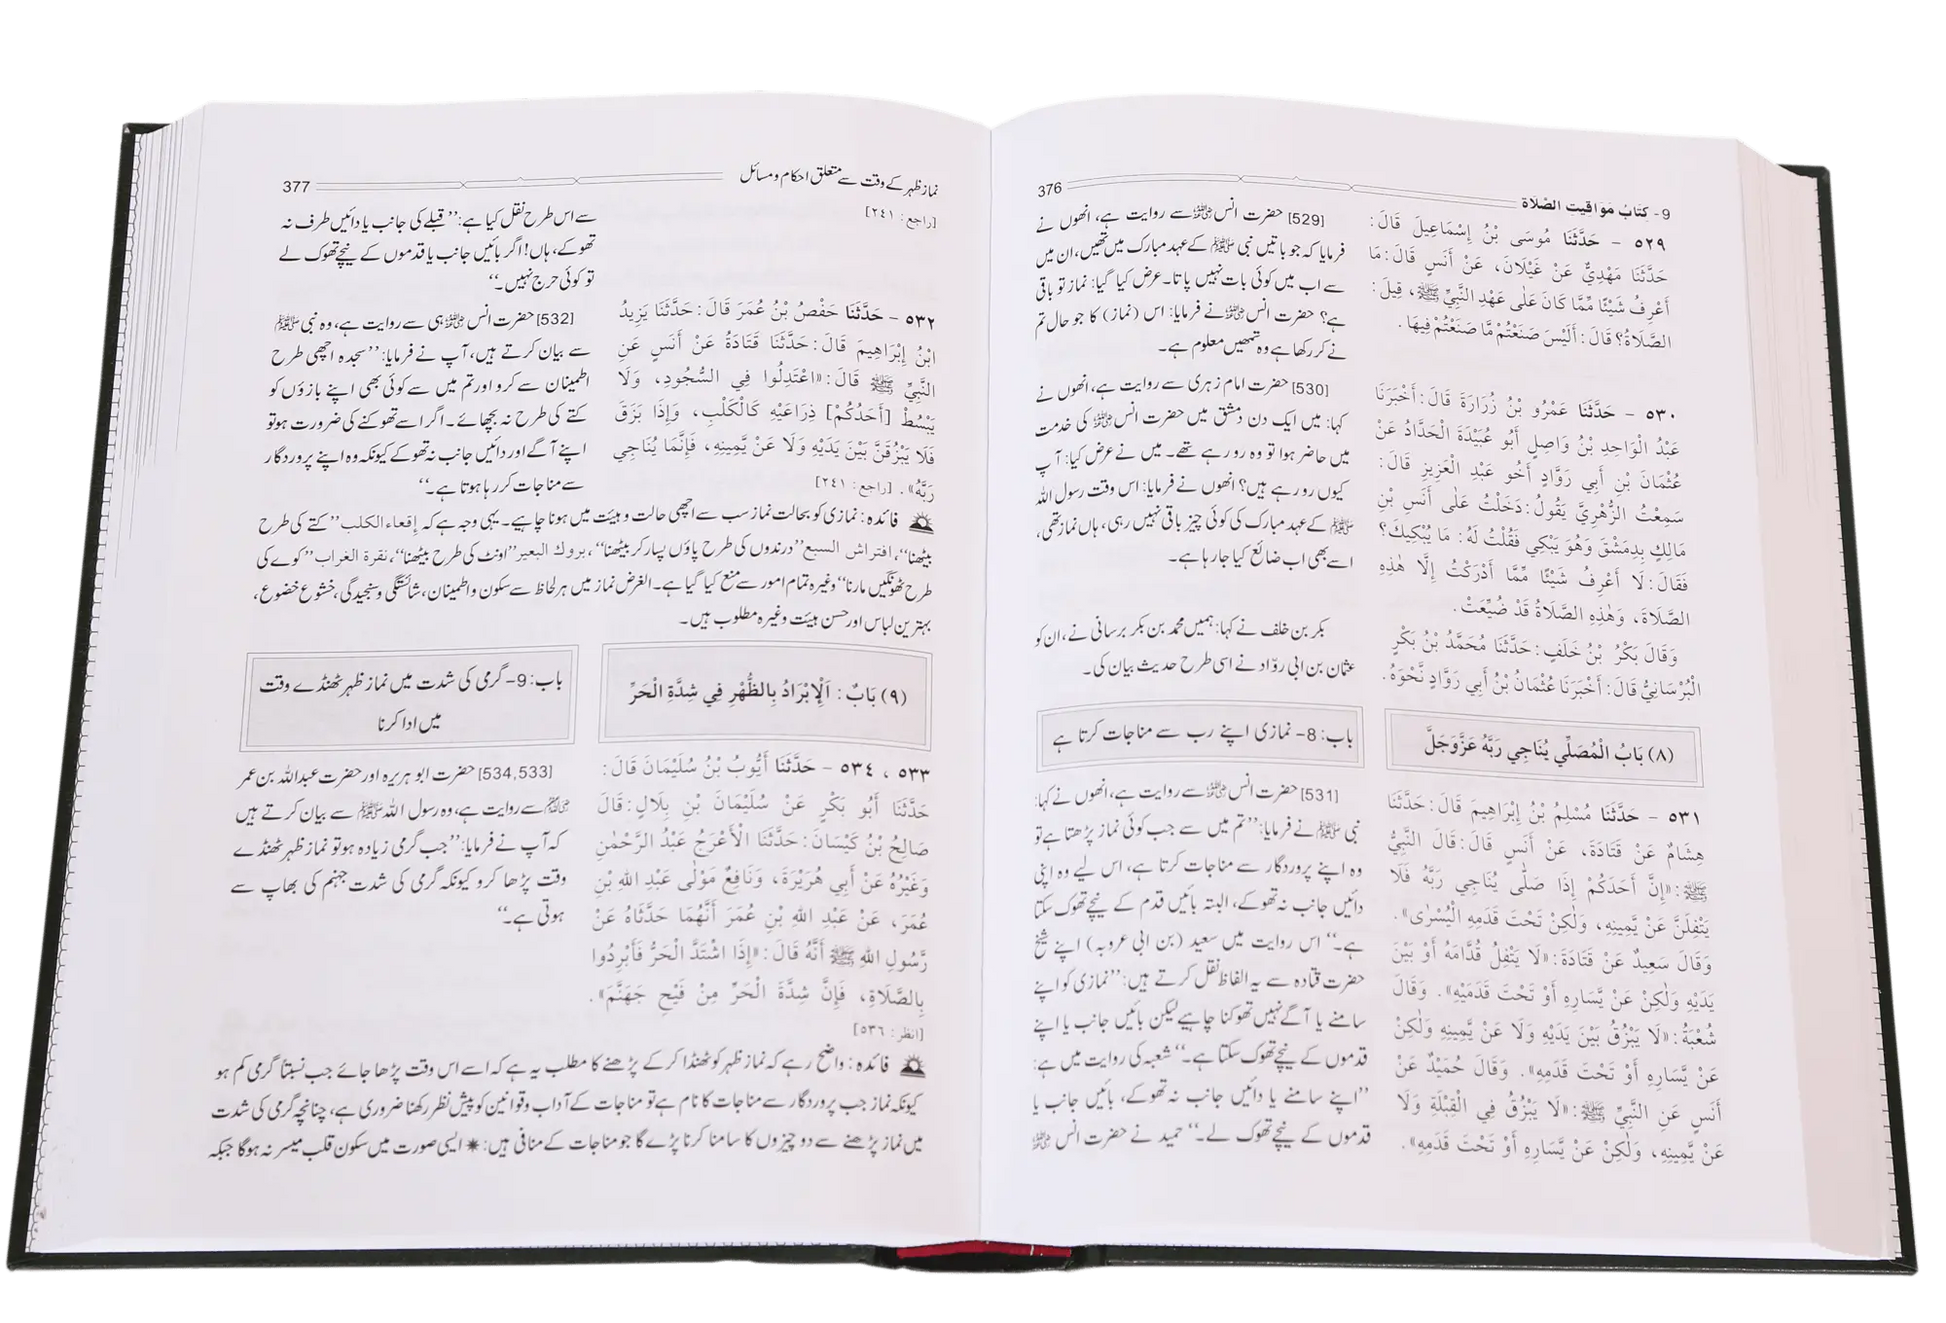 9- كتاب مواقيت الصلاة
376
٥٢٩ - حَدَّثَنَا مُوسَى بْنُ إِسْمَاعِيلَ قَالَ:
حَدَّثَنَا مَهْدِيٌّ عَنْ غَيْلَانَ، عَنْ أَنَسٍ قَالَ: مَا
أَعْرِفُ شَيْئًا مِّمَّا كَانَ عَلَى عَهْدِ النَّبِيِّ ﷺ، قِيلَ:
الصَّلَاةُ؟ قَالَ: أَلَيْسَ صَنَعْتُمْ مَّا صَنَعْتُمْ فِيهَا.
[529] حضرت انس ؓ سے روایت ہے، انھوں نے
فرمایا کہ جو باتیں نبی ﷺ کے عہد مبارک میں تھیں، ان میں
سے اب میں کوئی بات نہیں پاتا۔ عرض کیا گیا: نماز تو باقی
ہے؟ حضرت انس ؓ نے فرمایا: اس (نماز) کا جو حال تم
نے کر رکھا ہے وہ تمھیں معلوم ہے۔
٥٣٠ - حَدَّثَنَا عَمْرُو بْنُ زُرَارَةَ قَالَ: أَخْبَرَنَا
عَبْدُ الْوَاحِدِ بْنُ وَاصِلٍ أَبُو عُبَيْدَةَ الْحَدَّادُ عَنْ
عُثْمَانَ بْنِ أَبِي رَوَّادٍ أَخُو عَبْدِ الْعَزِيزِ قَالَ:
سَمِعْتُ الزُّهْرِيَّ يَقُولُ: دَخَلْتُ عَلَى أَنَسِ بْنِ
مَالِكٍ بِدِمَشْقَ وَهُوَ يَبْكِي فَقُلْتُ لَهُ: مَا يُبْكِيكَ؟
فَقَالَ: لَا أَعْرِفُ شَيْئًا مِّمَّا أَدْرَكْتُ إِلَّا هٰذِهِ
الصَّلَاةَ، وَهٰذِهِ الصَّلَاةُ قَدْ ضُيِّعَتْ.
وَقَالَ بَكْرُ بْنُ خَلَفٍ: حَدَّثَنَا مُحَمَّدُ بْنُ بَكْرٍ
الْبُرْسَانِيُّ قَالَ: أَخْبَرَنَا عُثْمَانُ بْنُ أَبِي رَوَّادٍ نَّحْوَهُ.
[530] حضرت امام زہری سے روایت ہے، انھوں نے
کہا: میں ایک دن دمشق میں حضرت انس ؓ کی خدمت
میں حاضر ہوا تو وہ رو رہے تھے۔ میں نے عرض کیا: آپ
کیوں رو رہے ہیں؟ انھوں نے فرمایا: اس وقت رسول اللہ
ﷺ کے عہد مبارک کی کوئی چیز باقی نہیں رہی، ہاں نماز تھی،
اسے بھی اب ضائع کیا جا رہا ہے۔
بکر بن خلف نے کہا: ہمیں محمد بن بکر برسانی نے، ان کو
عثمان بن ابی روّاد نے اسی طرح حدیث بیان کی۔
(٨) بَابُ الْمُصَلِّي يُنَاجِي رَبَّهُ عَزَّوَجَلَّ
باب: 8- نمازی اپنے رب سے مناجات کرتا ہے
٥٣١ - حَدَّثَنَا مُسْلِمُ بْنُ إِبْرَاهِيمَ قَالَ: حَدَّثَنَا
هِشَامٌ عَنْ قَتَادَةَ، عَنْ أَنَسٍ قَالَ: قَالَ النَّبِيُّ
ﷺ: «إِنَّ أَحَدَكُمْ إِذَا صَلَّى يُنَاجِي رَبَّهُ فَلَا
يَتْفِلَنَّ عَنْ يَّمِينِهِ، وَلٰكِنْ تَحْتَ قَدَمِهِ الْيُسْرٰى».
وَقَالَ سَعِيدٌ عَنْ قَتَادَةَ: «لَا يَتْفِلُ قُدَّامَهُ أَوْ بَيْنَ
يَدَيْهِ وَلٰكِنْ عَنْ يَّسَارِهِ أَوْ تَحْتَ قَدَمَيْهِ». وَقَالَ
شُعْبَةُ: «لَا يَبْزُقُ بَيْنَ يَدَيْهِ وَلَا عَنْ يَّمِينِهِ وَلٰكِنْ
عَنْ يَّسَارِهِ أَوْ تَحْتَ قَدَمِهِ». وَقَالَ حُمَيْدٌ عَنْ
أَنَسٍ عَنِ النَّبِيِّ ﷺ: «لَا يَبْزُقْ فِي الْقِبْلَةِ وَلَا
عَنْ يَّمِينِهِ، وَلٰكِنْ عَنْ يَّسَارِهِ أَوْ تَحْتَ قَدَمِهِ».
[531] حضرت انس ؓ سے روایت ہے، انھوں نے کہا:
نبی ﷺ نے فرمایا: ”تم میں سے جب کوئی نماز پڑھتا ہے تو
وہ اپنے پروردگار سے مناجات کرتا ہے، اس لیے وہ اپنی
دائیں جانب نہ تھوکے، البتہ بائیں قدم کے نیچے تھوک سکتا
ہے۔“ اس روایت میں سعید (بن ابی عروبہ) اپنے شیخ
حضرت قتادہ سے یہ الفاظ نقل کرتے ہیں: ”نمازی کو اپنے
سامنے یا آگے نہیں تھوکنا چاہیے لیکن بائیں جانب یا اپنے
قدموں کے نیچے تھوک سکتا ہے۔“ شعبہ کی روایت میں ہے:
”اپنے سامنے یا دائیں جانب نہ تھوکے، بائیں جانب یا
قدموں کے نیچے تھوک لے۔“ حمید نے حضرت انس ؓ
نماز ظہر کے وقت سے متعلق احکام و مسائل
377
[راجع: ٢٤١]
سے اس طرح نقل کیا ہے: ”قبلے کی جانب یا دائیں طرف نہ
تھوکے، ہاں! اگر بائیں جانب یا قدموں کے نیچے تھوک لے
تو کوئی حرج نہیں۔“
٥٣٢ - حَدَّثَنَا حَفْصُ بْنُ عُمَرَ قَالَ: حَدَّثَنَا يَزِيدُ
ابْنُ إِبْرَاهِيمَ قَالَ: حَدَّثَنَا قَتَادَةُ عَنْ أَنَسٍ عَنِ
النَّبِيِّ ﷺ قَالَ: «اعْتَدِلُوا فِي السُّجُودِ، وَلَا
يَبْسُطْ [أَحَدُكُمْ] ذِرَاعَيْهِ كَالْكَلْبِ، وَإِذَا بَزَقَ
فَلَا يَبْزُقَنَّ بَيْنَ يَدَيْهِ وَلَا عَنْ يَّمِينِهِ، فَإِنَّمَا يُنَاجِي
رَبَّهُ». [راجع: ٢٤١]
[532] حضرت انس ؓ ہی سے روایت ہے، وہ نبی ﷺ
سے بیان کرتے ہیں، آپ نے فرمایا: ”سجدہ اچھی طرح
اطمینان سے کرو اور تم میں سے کوئی بھی اپنے بازوؤں کو
کتے کی طرح نہ بچھائے۔ اگر اسے تھوکنے کی ضرورت ہو تو
اپنے آگے اور دائیں جانب نہ تھوکے کیونکہ وہ اپنے پروردگار
سے مناجات کر رہا ہوتا ہے۔“
فائدہ: نمازی کو بحالت نماز سب سے اچھی حالت و ہیئت میں ہونا چاہیے۔ یہی وجہ ہے کہ إقعاء الكلب ”کتے کی طرح
بیٹھنا“، افتراش السبع ”درندوں کی طرح پاؤں پسار کر بیٹھنا“، بروك البعير ”اونٹ کی طرح بیٹھنا“، نقرة الغراب ”کوے کی
طرح ٹھونگیں مارنا“ وغیرہ تمام امور سے منع کیا گیا ہے۔ الغرض نماز میں ہر لحاظ سے سکون و اطمینان، شائستگی و سنجیدگی، خشوع خضوع،
بہترین لباس اور حسن ہیئت وغیرہ مطلوب ہیں۔
(٩) بَابٌ: اَلْإِبْرَادُ بِالظُّهْرِ فِي شِدَّةِ الْحَرِّ
باب: 9- گرمی کی شدت میں نماز ظہر ٹھنڈے وقت
میں ادا کرنا
٥٣٣ ، ٥٣٤ - حَدَّثَنَا أَيُّوبُ بْنُ سُلَيْمَانَ قَالَ:
حَدَّثَنَا أَبُو بَكْرٍ عَنْ سُلَيْمَانَ بْنِ بِلَالٍ: قَالَ
صَالِحُ بْنُ كَيْسَانَ: حَدَّثَنَا الْأَعْرَجُ عَبْدُ الرَّحْمٰنِ
وَغَيْرُهُ عَنْ أَبِي هُرَيْرَةَ، وَنَافِعٌ مَوْلَى عَبْدِ اللهِ بْنِ
عُمَرَ، عَنْ عَبْدِ اللهِ بْنِ عُمَرَ أَنَّهُمَا حَدَّثَاهُ عَنْ
رَّسُولِ اللهِ ﷺ أَنَّهُ قَالَ: «إِذَا اشْتَدَّ الْحَرُّ فَأَبْرِدُوا
بِالصَّلَاةِ، فَإِنَّ شِدَّةَ الْحَرِّ مِنْ فَيْحِ جَهَنَّمَ».
[انظر: ٥٣٦]
[534,533] حضرت ابو ہریرہ اور حضرت عبداللہ بن عمر
ؓ سے روایت ہے، وہ رسول اللہ ﷺ سے بیان کرتے ہیں
کہ آپ نے فرمایا: ”جب گرمی زیادہ ہو تو نماز ظہر ٹھنڈے
وقت پڑھا کرو کیونکہ گرمی کی شدت جہنم کی بھاپ سے
ہوتی ہے۔“
فائدہ: واضح رہے کہ نماز ظہر کو ٹھنڈا کر کے پڑھنے کا مطلب یہ ہے کہ اسے اس وقت پڑھا جائے جب نسبتاً گرمی کم ہو
کیونکہ نماز جب پروردگار سے مناجات کا نام ہے تو مناجات کے آداب و قوانین کو پیش نظر رکھنا ضروری ہے، چنانچہ گرمی کی شدت
میں نماز پڑھنے سے دو چیزوں کا سامنا کرنا پڑے گا جو مناجات کے منافی ہیں: ✷ ایسی صورت میں سکون قلب میسر نہ ہوگا جبکہ